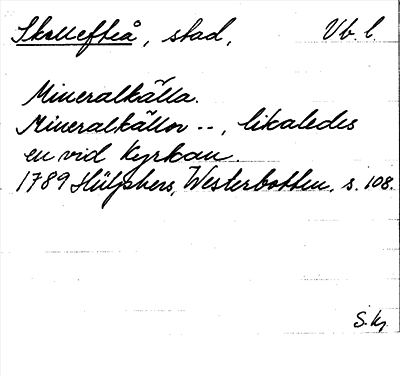 Skellefteå, stad, Vb. l.
Mineralkälla.
Mineralkällor --, likaledes
en vid Kyrkan.
1789 Hülphers, Westerbotten, s. 108.